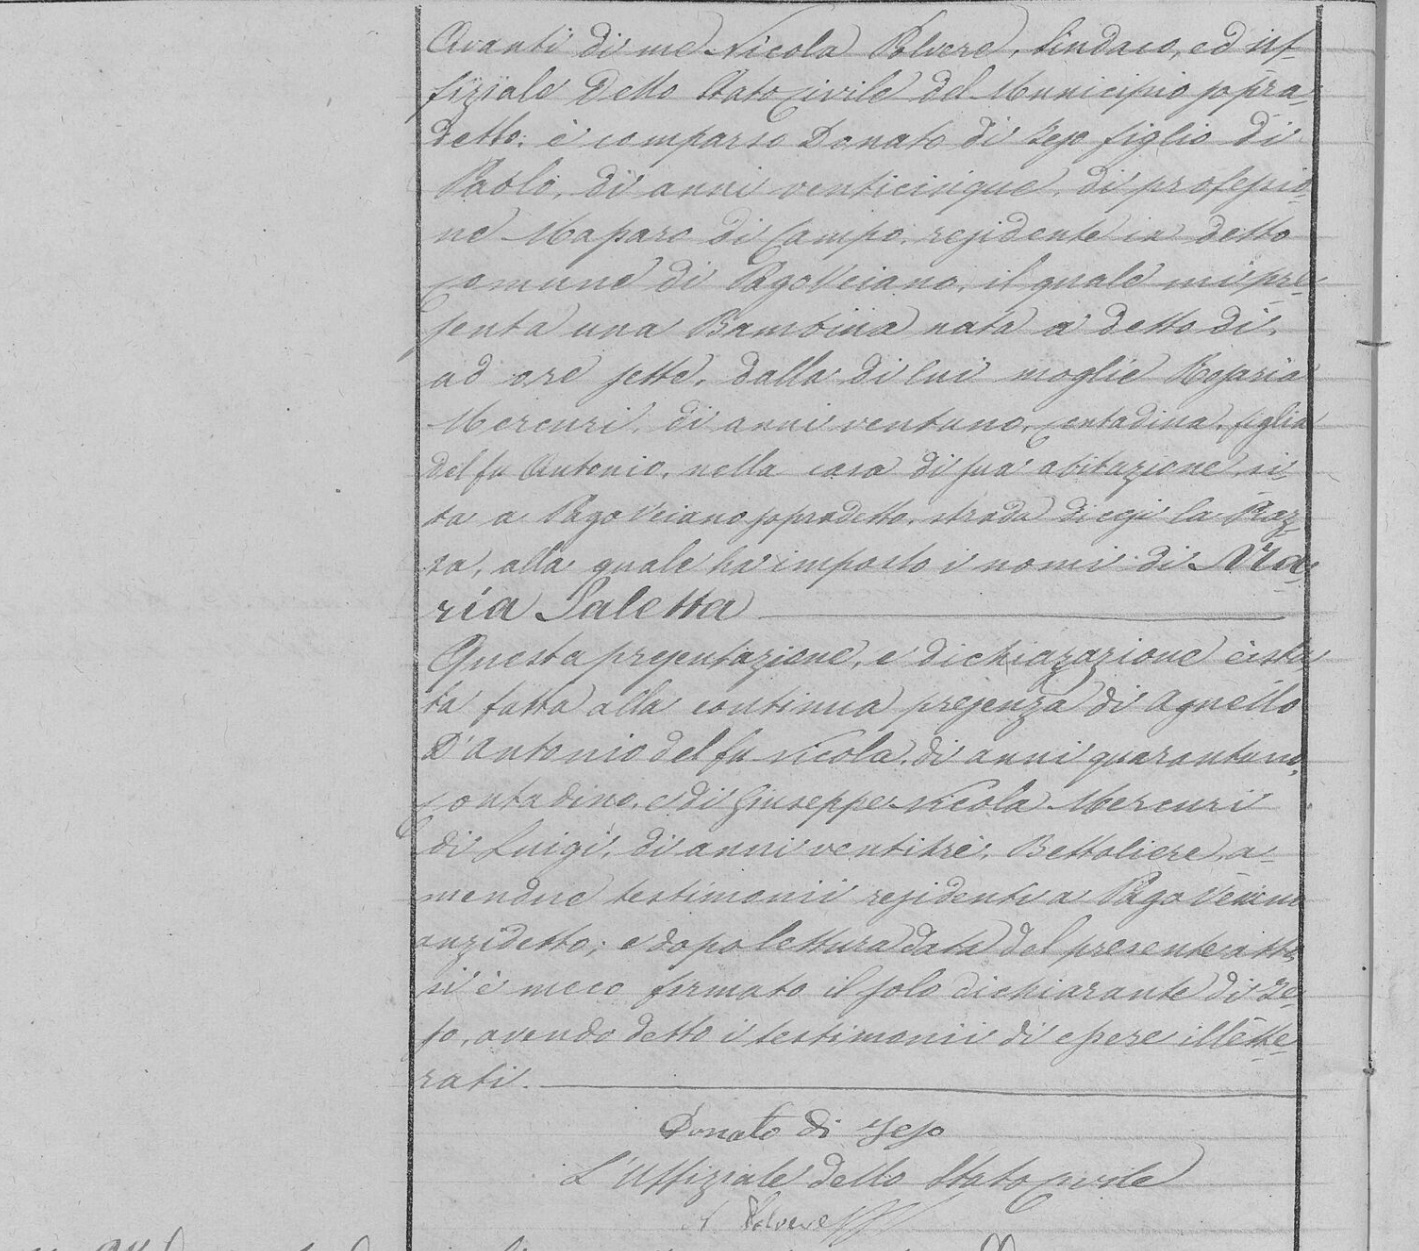 Avanti di me Nicola Polvere, Sindaco, ed uf-
fiziale dello Stato Civile del Municipio sopra-
detto; è comparso Donato di Geso figlio di
Paolo, di anni venticinque, di professio-
ne Massaro di Campo, residente in detto
comune di Pago Veiano, il quale mi pre-
senta una Bambina nata a detto dì,
ad ore sette, dalla di lui moglie Rosaria
Mercuri, di anni ventuno, contadina, figlia
del fu Antonio, nella casa di sua abitazione, si-
ta a Pago Veiano sopradetto, strada di cqui la Piaz-
za, alla quale ha imposto i nomi di Ma-
ria Saletta
Questa presentazione, e dichiarazione è sta-
ta fatta alla continua presenza di Agnello
D'Antonio del fu Nicola, di anni quarantuno,
contadino, e di Giuseppe Nicola Mercuri
di Luigi, di anni ventitrè, Bettoliere, a-
mendue testimonii residenti a Pago Veiano
anzidetto; e dopo lettura data del presente atto
si è meco firmato il solo dichiarante di Ge-
so, avendo detto i testimonii di essere illette-
rati.
Donato di Geso
L'Uffiziale dello Stato Civile
N Polvere